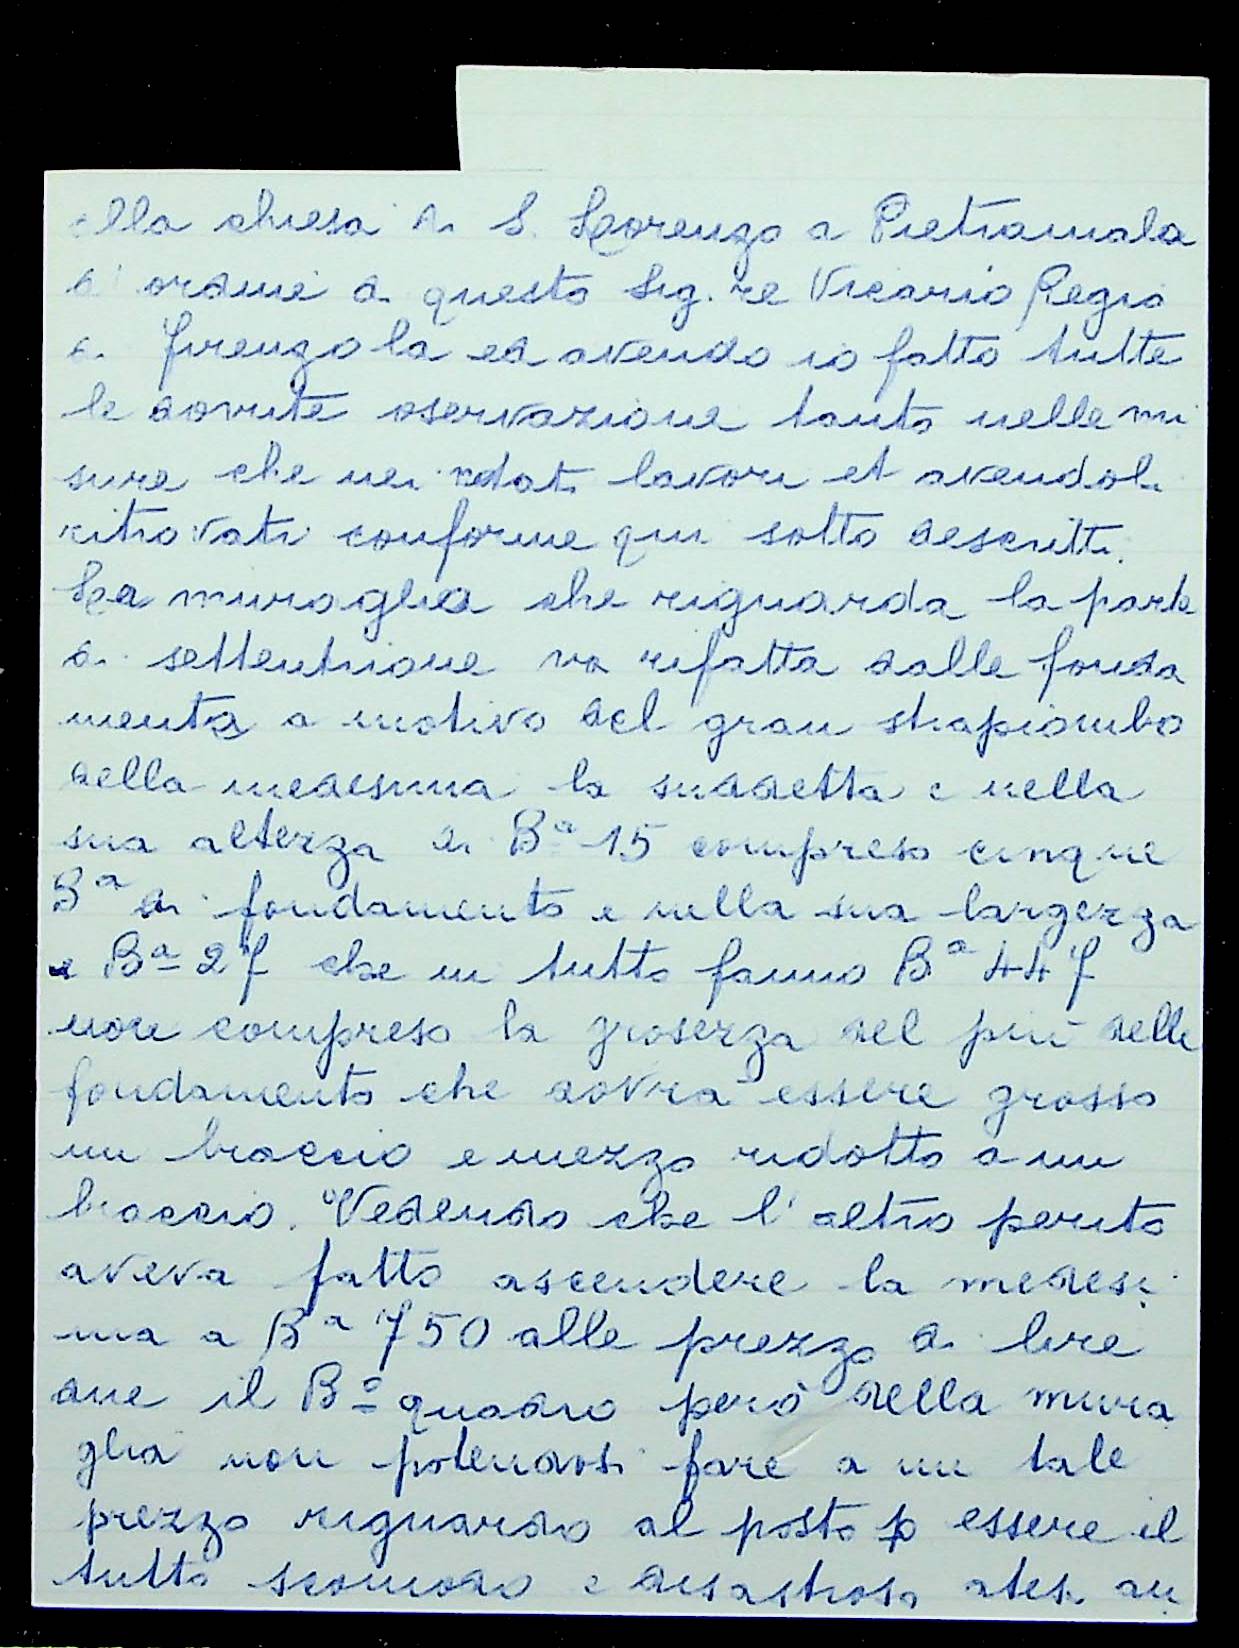 alla chiesa di S. Lorenzo a Pietramala
d'ordine di questo Sig. re Vicario Regio
di Firenzola ed avendo io fatto tutte
le dovute oservazione tanto nelle mi
sure che nei lavori et avendoli
ritrovati conforme qui sotto descritti.
La muraglia che riguarda la parte
di settentrione va rifatta dalle fonda
menta a motivo del gran strapiombo
della medesima la suddetta è nella
sua altezza di Bª 15 compreso cinque
Bª di fondamento e nella sua largezza
è Bª 27 che in tutto fanno Bª 447
non compreso la groserza del più delle
fondamento che dovrà essere grosso
un braccio e mezzo ridotto a un
braccio. Vedendo che l'altro perito
aveva fatto ascendere la medesi
ma a Bª 750 alle prezzo di lire
due il Bº quadro però della mura
glia non potendosi fare a un tale
prezzo riguardo al posto p essere il
tutto scomodo e disastroso